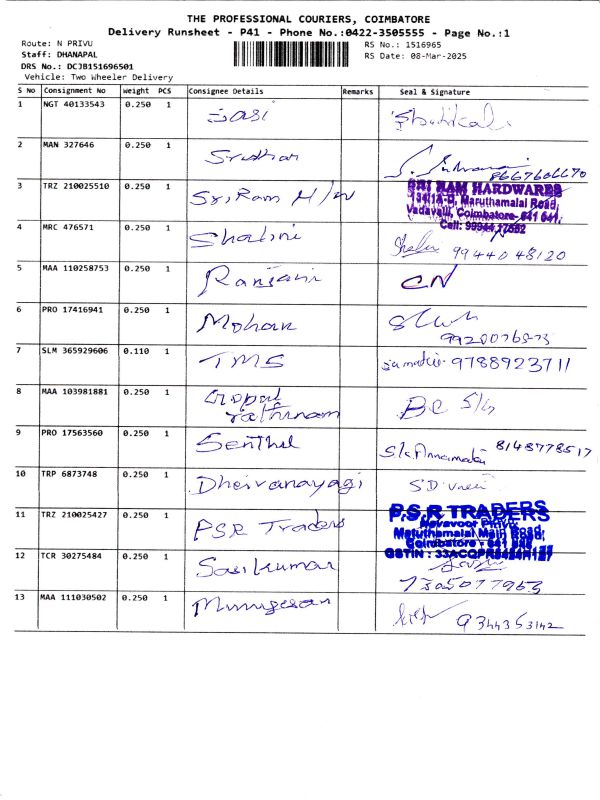 THE PROFESSIONAL COURIERS, COIMBATORE
Delivery Runsheet - P41 - Phone No.:0422-3505555 - Page No.:1
Route: N PRIVU RS No.: 1516965
Staff: DHANAPAL RS Date: 08-Mar-2025
DRS No.: DCJB151696501
Vehicle: Two Wheeler Delivery
S No Consignment No Weight PCS Consignee Details Remarks Seal & Signature
1 NGT 40133543 0.250 1 Sasi
2 MAN 327646 0.250 1 Sridhar
8667606670
3 TRZ 210025510 0.250 1 Sri Ram H/W
SRI RAM HARDWARES
134/1A-D, Maruthamalai Road,
Vadavalli, Coimbatore- 641 041.
Cell:
4 MRC 476571 0.250 1 Shalini
99440 48120
5 MAA 110258753 0.250 1 Ranjani CN
6 PRO 17416941 0.250 1 Mohan
7 SLM 365929606 0.110 1 TMS 9788923711
8 MAA 103981881 0.250 1 Gopal
rathinam
9 PRO 17563560 0.250 1 Senthil 8148778517
10 TRP 6873748 0.250 1 Dheivanayagi S.D
11 TRZ 210025427 0.250 1 PSR Traders
P.S.R TRADERS
Maruthamalai Main Road,
Coimbatore - 641
GSTIN :
12 TCR 30275484 0.250 1 Sasikumar
13 MAA 111030502 0.250 1 Murugesan 9344353142